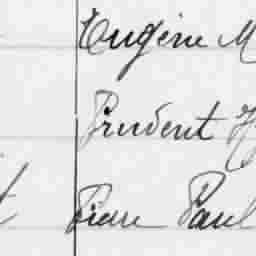 Eugène M
Prudent H
Pierre Paul